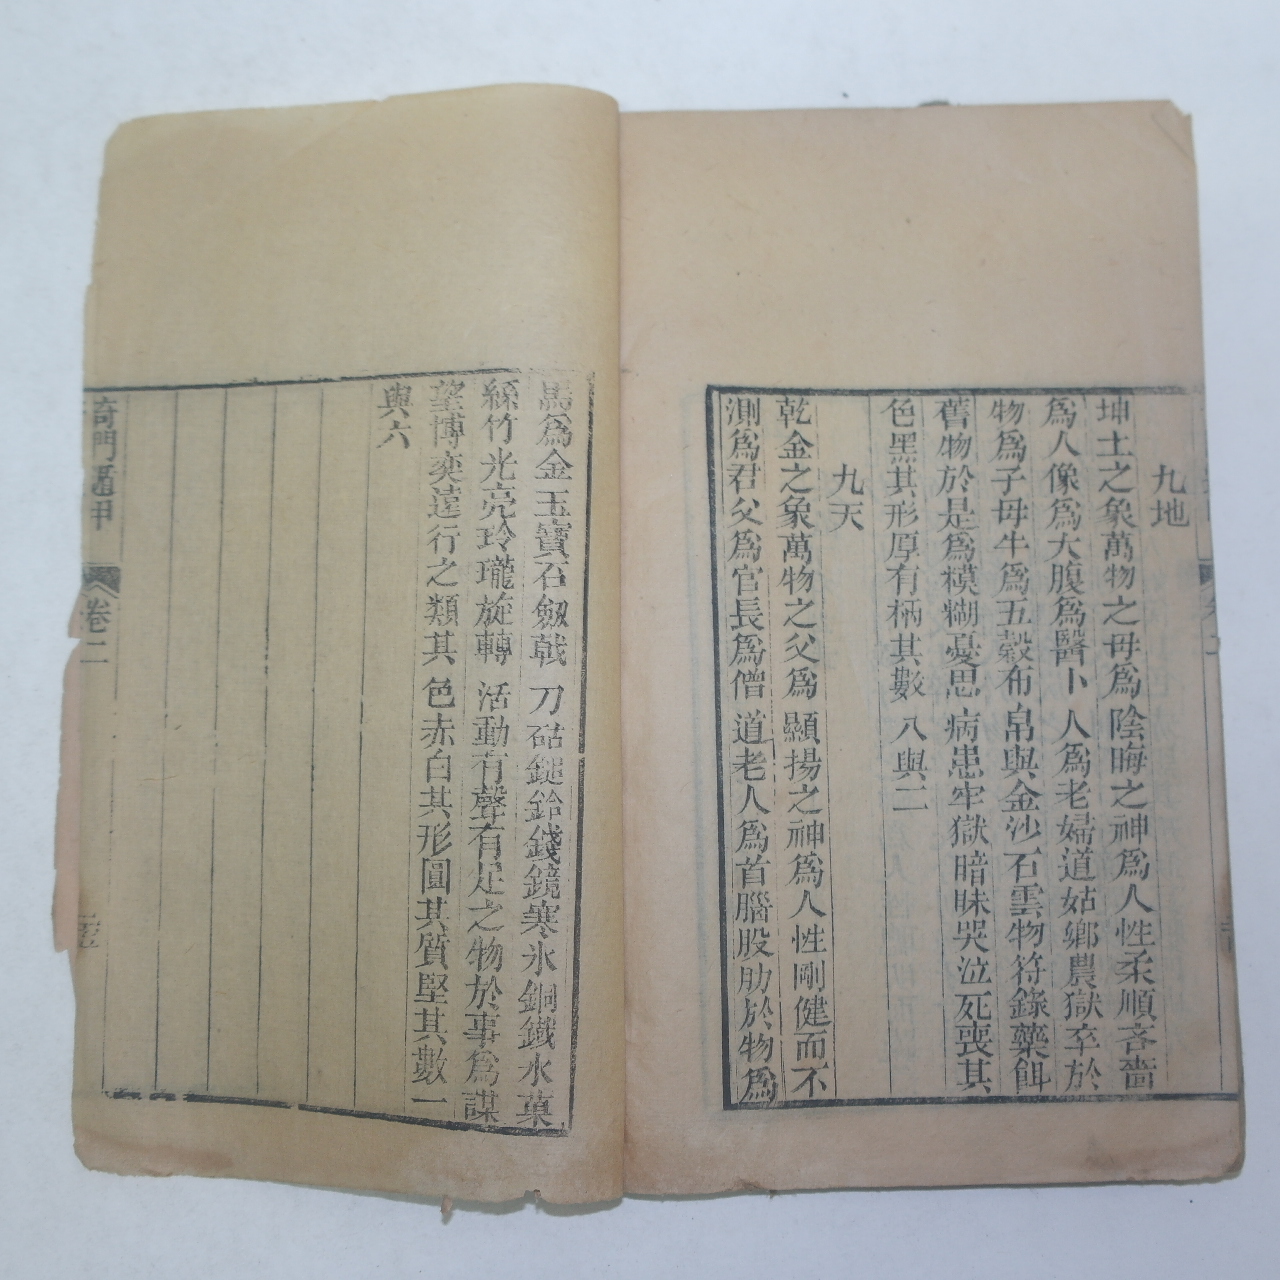 九地
坤土之象萬物之母爲陰晦之神爲人性柔順吝嗇
爲人像爲大腹爲醫卜人爲老婦道姑鄉農獄卒於
物爲子母牛爲五穀布帛與金沙石雲物符錄藥餌
舊物於是爲模糊憂思病患牢獄暗昧哭泣死喪其
色黑其形厚有柄其數八與二
九天
乾金之象萬物之父爲顯揚之神爲人性剛健而不
測爲君父爲官長爲僧道老人爲首腦股肋於物爲
馬爲金玉寶石劔戟刀砧鎚鈴錢鏡寒氷銅鐵水菓
絲竹光亮玲瓏旋轉活動有聲有足之物於事爲謀
望博奕遠行之類其色赤白其形圓其質堅其數一
與六
奇門遁甲 卷二